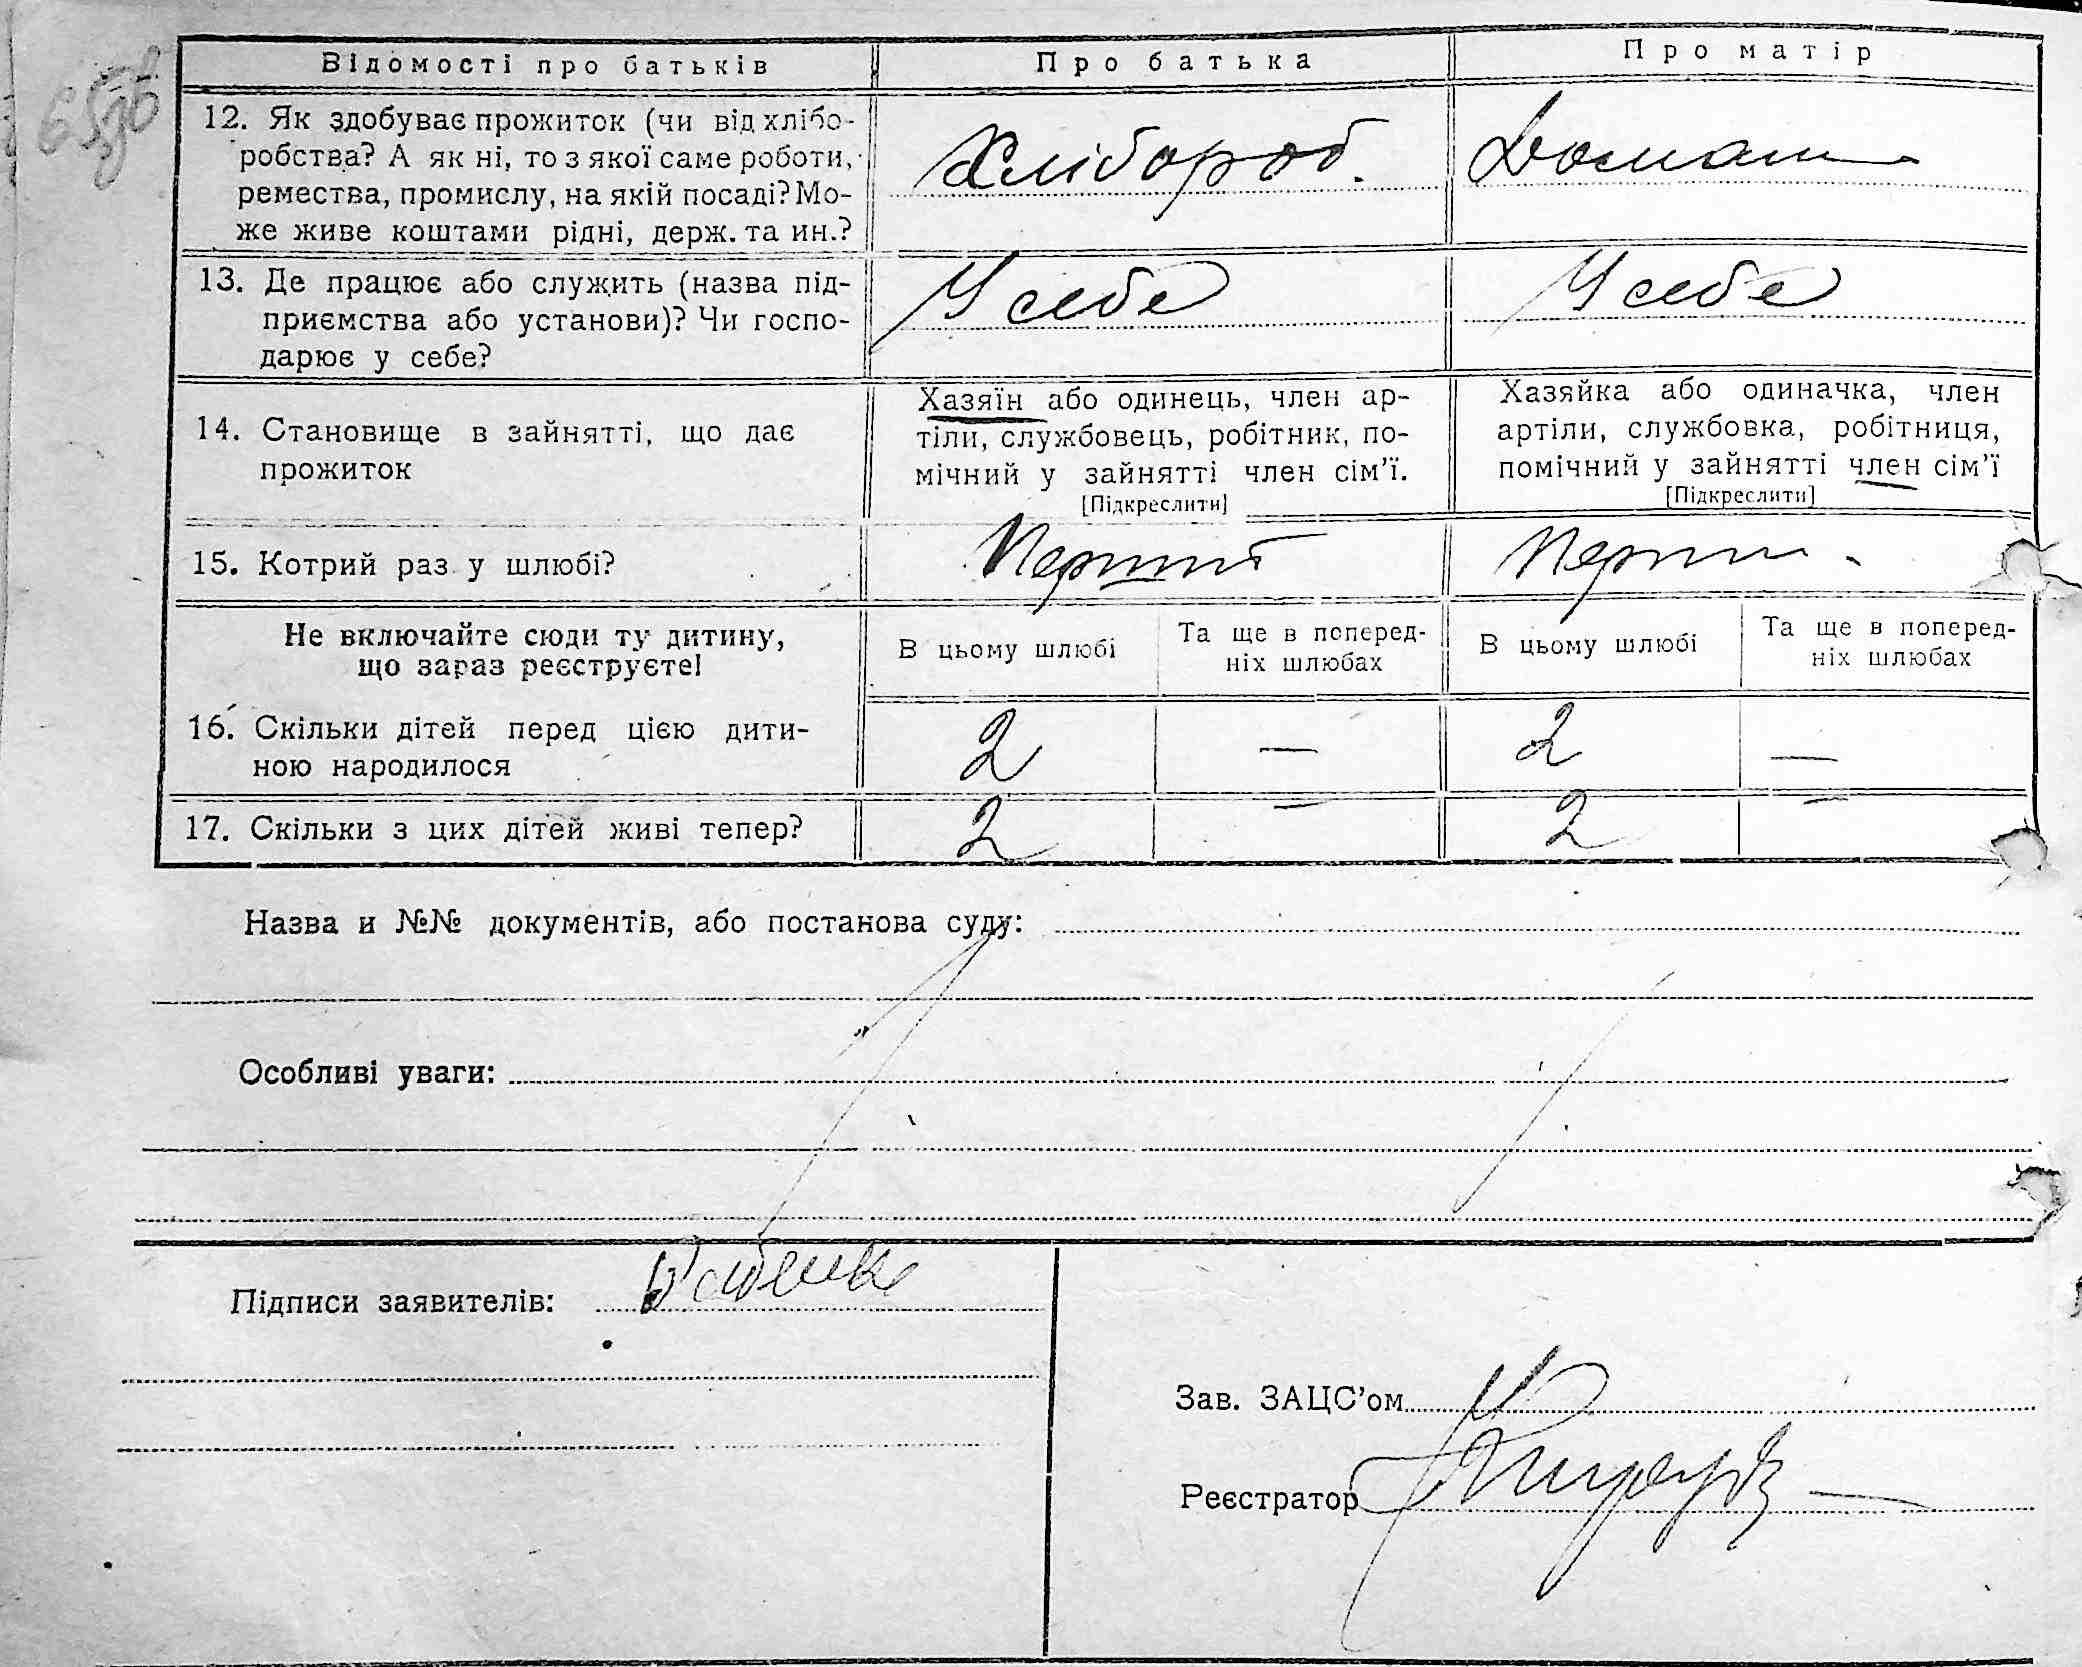 Відомості про батьків
Про батька
Про матір
12. Як здобуває прожиток (чи від хлібо-
робства? А як ні, то з якої саме роботи,
ремества, промислу, на якій посаді? Мо-
же живе коштами рідні, держ. та ин.?
Хлібороб.
Домаш
13. Де працює або служить (назва під-
приємства або установи)? Чи госпо-
дарює у себе?
У себе
У себе
14. Становище в зайнятті, що дає
прожиток
Хазяїн або одинець, член ар-
тіли, службовець, робітник, по-
мічний у зайнятті член сім’ї.
[Підкреслити]
Хазяйка або одиначка, член
артіли, службовка, робітниця,
помічний у зайнятті член сім’ї
[Підкреслити]
15. Котрий раз у шлюбі?
Перший
Перши
Не включайте сюди ту дитину,
що зараз реєструєте!
В цьому шлюбі
Та ще в поперед-
ніх шлюбах
В цьому шлюбі
Та ще в поперед-
ніх шлюбах
16. Скільки дітей перед цією дити-
ною народилося
2 — 2 —
17. Скільки з цих дітей живі тепер?
2 — 2 —
Назва и №№ документів, або постанова суду:
Особливі уваги:
Підписи заявителів:
Зав. ЗАЦС’ом
Реєстратор